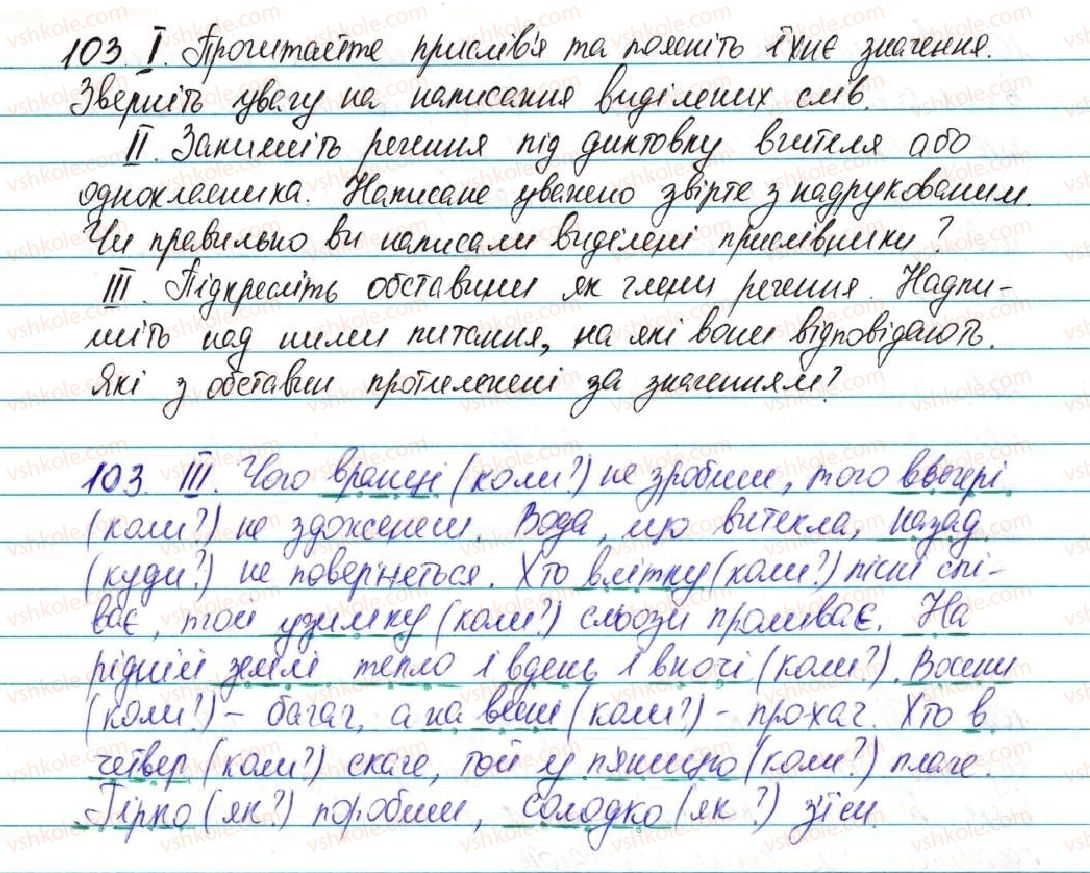 103. I. Прочитайте прислів'я та поясніть їхнє значення.
Зверніть увагу на написання виділених слів.
II. Запишіть речення під диктовку вчителя або
однокласника. Написане уважно звірте з надрукованим.
Чи правильно ви написали виділені прислівники?
III. Підкресліть обставини як члени речення. Надпи-
шіть над ними питання, на які вони відповідають.
Які з обставин протилежні за значенням?
103. III. Чого вранці (коли?) не зробиш, того ввечері
(коли?) не здоженеш. Вода, що витекла, назад
(куди?) не повернеться. Хто влітку (коли?) пісні спі-
ває, той узимку (коли?) сльози проливає. На
рідній землі тепло і вдень і вночі (коли?). Восени
(коли?) – багач, а на весні (коли?) – прохач. Хто в
четвер (коли?) скаче, той у п'яницю (коли?) плаче.
Гірко (як?) поробиш, солодко (як?) з'їси.
vshkole.com